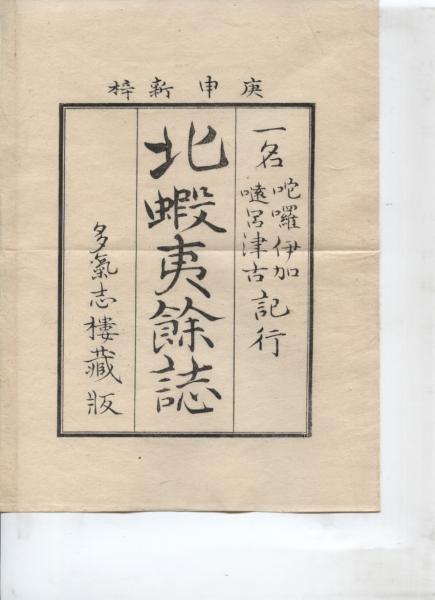 庚申新梓
一名
咜囉伊加
呂津古
記行
北蝦夷餘誌
多氣志樓藏版